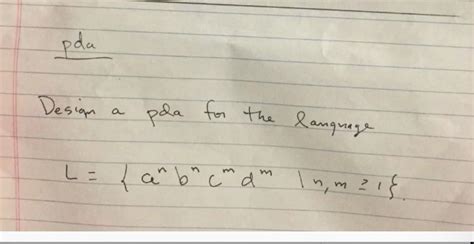 pda
Design a pda for the language
L = { aⁿ bⁿ cᵐ dᵐ | n, m ≥ 1 }.